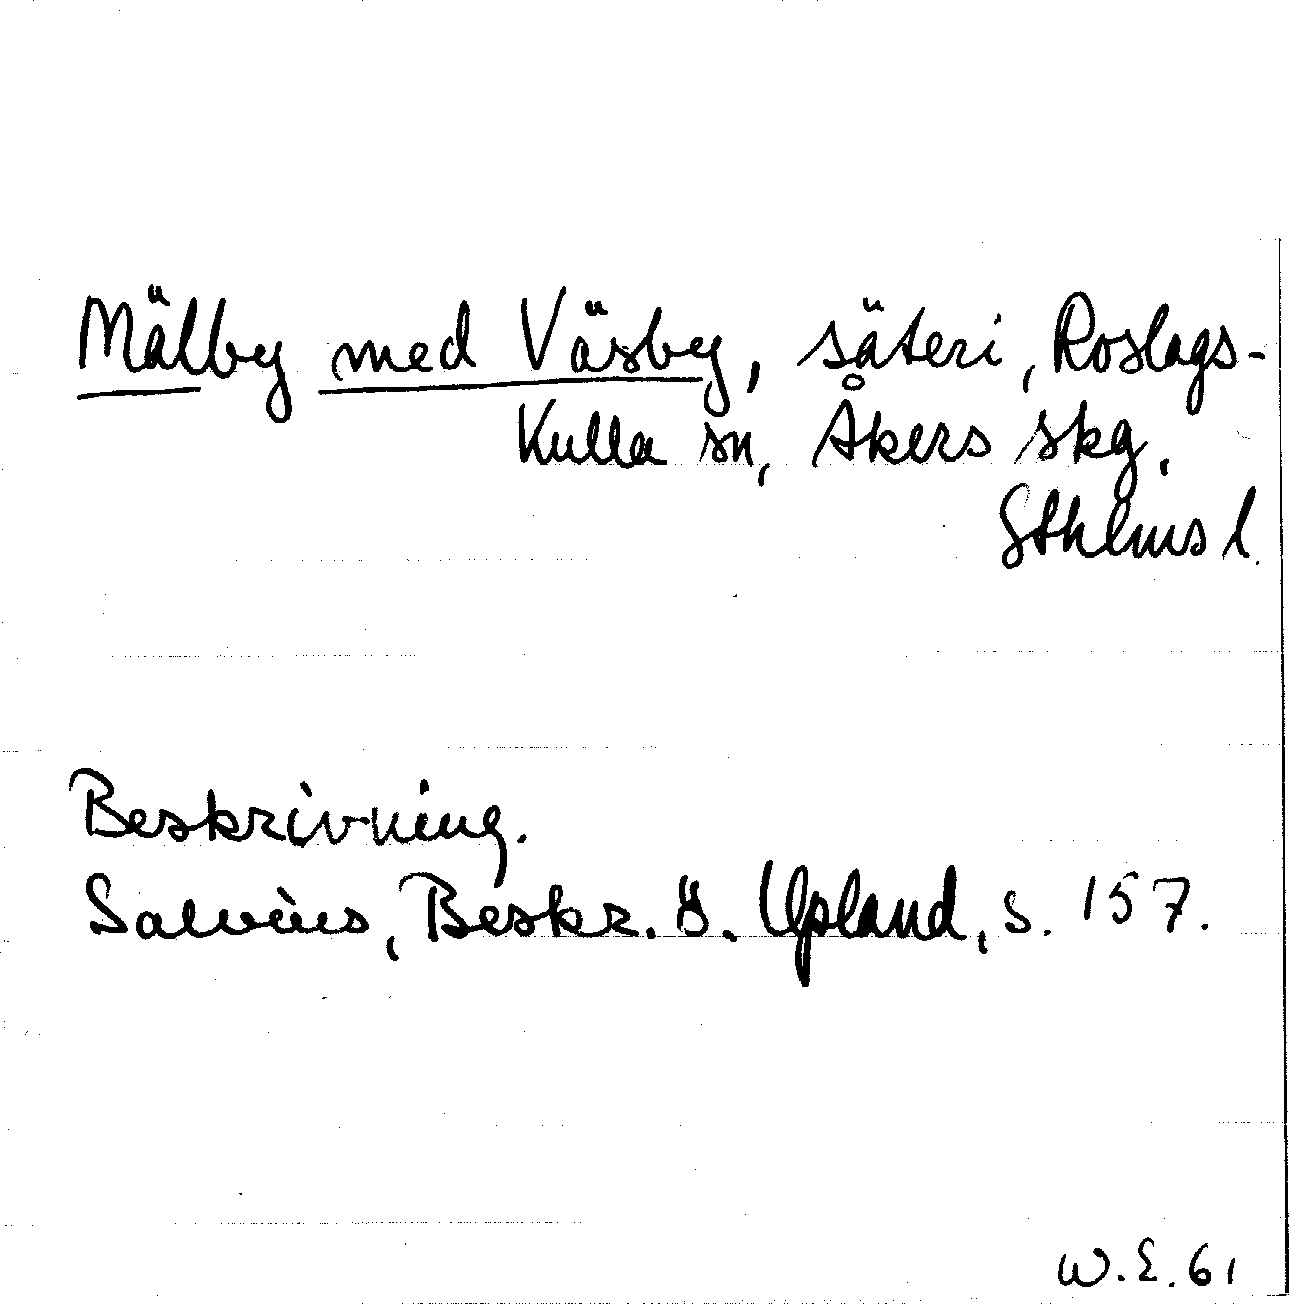 Mälby med Väsby, säteri, Roslags-
Kulla sn, Åkers skg,
Sthlms l.
Beskrivning.
Salvius, Beskr. ö. Upland, s. 157.
W.E. 61